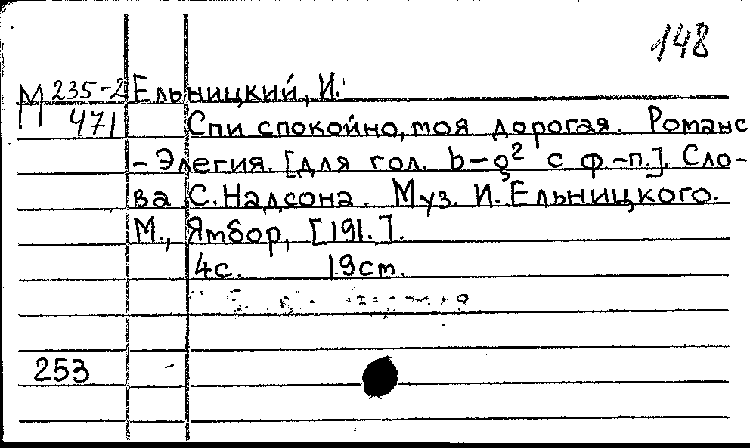 148
М 235-2 Ельницкий, И.
471 Спи спокойно, моя дорогая. Романс
- Элегия. [для гол. b-g² с ф.-п.]. Сло-
ва С. Надсона. Муз. И. Ельницкого.
М., Ямбор, [191.].
4с. 19cm.
253